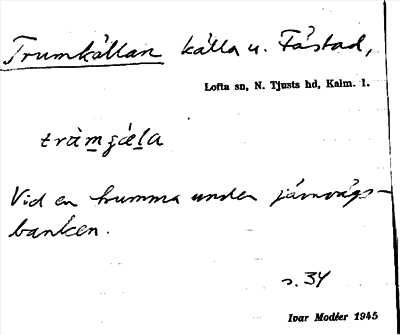 Trumkällan källa u. Fåstad,
Lofta sn, N. Tjusts hd, Kalm. l.
tràmʒǽla
Vid en trumma under järnvägs-
banken.
s. 34
Ivar Modéer 1945